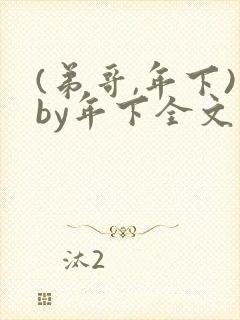 (弟哥,年下)
by年下全文
汰2